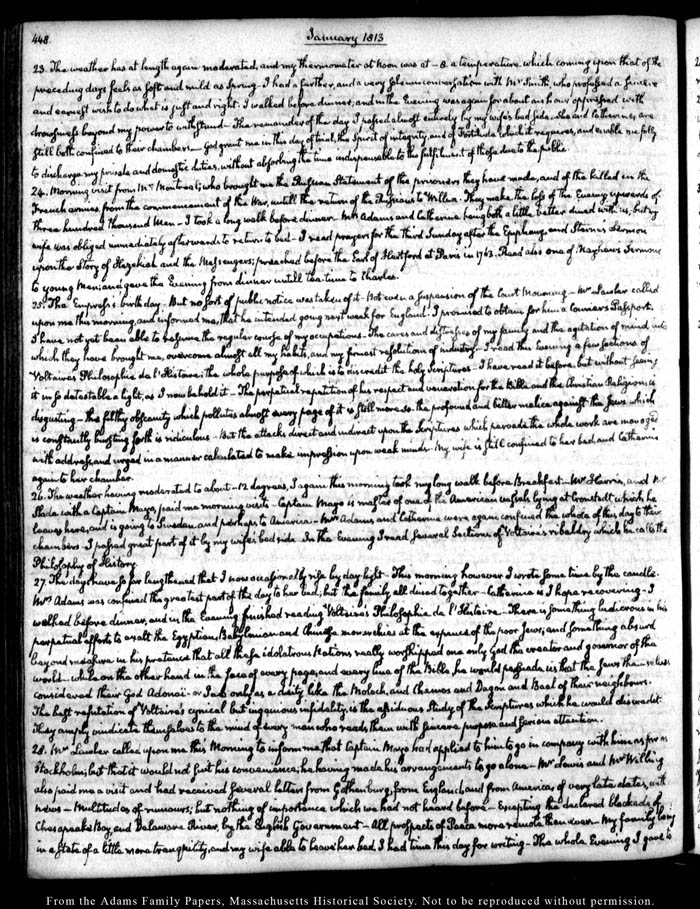 448
January 1813
23. The weather has at length again moderated, and my thermometer at noon was at -8. a temperature which coming upon that of the
preceding days feels as soft and mild as Spring. I had a further, and a very solemn conversation with Mr Smith, who professed a sincere
and earnest wish to do what is just and right. I walked before dinner; and in the Evening was again for about an hour oppressed with
drowsiness beyond my power to withstand. The remainder of the day I passed almost entirely by my wife's bed side. She and Catherine, are
still both confined to their chambers. God grant me in this day of trial, the Spirit of integrity, and of Fortitude which it requires, and enable me fully
to discharge my private and domestic duties, without absorbing the time indispensable to the fulfilment of those due to the public.
24. Morning visit from Mr Montreal; who brought me the Russian Statement of the prisoners they have made, and of the killed in the
French armies from the commencement of the War, untill the return of the Russians to Wilna. They make the loss of the Enemy upwards of
three hundred thousand Men. I took a long walk before dinner. Mrs Adams and Catherine being both a little better dined with us, but my
wife was obliged immediately afterwards to return to bed. I read prayers for the third Sunday after the Epiphany, and Sterne's Sermon
upon the Story of Hezekiah and the Messengers; preached before the Earl of Hertford at Paris in 1763. Read also one of Mazheas Sermons
to young Men; and gave the Evening from dinner untill tea time to Charles.
25. The Empress's birth day. But no sort of public notice was taken of it. Not even a suspension of the Court Mourning. Mr Lawler called
upon me this morning, and informed me, that he intended going next week for England. I promised to obtain for him a Courier's Passport.
I have not yet been able to resume the regular course of my occupations. The cares and distresses of my family and the agitation of mind into
which they have brought me, overcome almost all my habits, and my firmest resolution of industry. I read this Evening a few Sections of
Voltaire's Philosophie de l'Histoire: the whole purpose of which is to discredit the holy Scriptures. I have read it before, but without seeing
it in so detestable a light, as I now behold it. The perpetual repetition of his respect and veneration for the Bible and the Christian Religion, is
disgusting. the filthy obscenity which pollutes almost every page of it is still more so. the profound and bitter malice against the Jews which
is constantly bursting forth is ridiculous. But the attacks direct and indirect upon the Scriptures which pervade the whole work are managed
with address, and urged in a manner calculated to make impression upon weak minds. My wife is still confined to her bed, and Catherine
again to her chamber.
26. The weather having moderated to about -12 degrees, I again this morning took my long walk before Breakfast. Mr Harris, and Mr
Slade with a Captain Mayo, paid me morning visits. Captain Mayo is master of one of the American vessels lying at Cronstadt which he
leaves here, and is going to Sweden, and perhaps to America. Mrs Adams and Catherine were again confined the whole of this day to their
chambers. I passed great part of it by my wife's bed side. In the Evening I read several Sections of Voltaire's ribaldry which he calls the
Philosophy of History.
27. The days have so far lengthened that I now occasionally rise by day light. This morning however I wrote some time by the candle.
Mrs Adams was confined the greatest part of the day to her bed, but the family all dined together. Catherine is I hope recovering. I
walked before dinner, and in the Evening finished reading Voltaire's Philosophie de l'Histoire. There is something ludicrous in his
perpetual efforts to exalt the Egyptian, Babylonian and Chinese monarchies at the expence of the poor Jews; and something absurd
beyond measure in his pretence that all these idolatrous Nations really worshipped one only God the creator and governor of the
world. while on the other hand in the face of every page, and every line of the Bible, he would persuade us that the Jews themselves
considered their God Adonai or Iao only as a deity like the Moloch, and Chamos and Dagon and Baal of their neighbours.
The best refutation of Voltaire's cynical but ingenious infidelity, is the assiduous Study of the Scriptures which he would discredit.
They amply vindicate themselves to the mind of every man who reads them with sincere purpose and serious attention.
28. Mr Lawler called upon me this Morning to inform me that Captain Mayo had applied to him to go in company with him as far as
Stockholm; but that it would not suit his convenience, he having made his arrangements to go alone. Mr Lewis and Mr Willing
also paid me a visit and had received several letters from Gothenburg, from England, and from America, of very late dates, with
news. Multitudes of rumours; but nothing of importance which we had not heard before. Excepting the declared blockade of
Chesapeake Bay, and Delaware River, by the English Government. All prospects of Peace more remote than ever. My family being
in a state of a little more tranquility, and my wife able to leave her bed, I had time this day for writing. The whole Evening I gave to
From the Adams Family Papers, Massachusetts Historical Society. Not to be reproduced without permission.